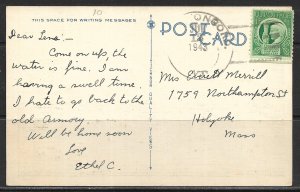 10
THIS SPACE FOR WRITING MESSAGES
POST CARD
1943
Dear Lena:-
Come on up, the
water is fine. I am
having a swell time.
I hate to go back to the
old Armory.
Will be home soon
Love
Ethel C.
Mrs Everett Merrill
1759 Northampton St
Holyoke
Mass